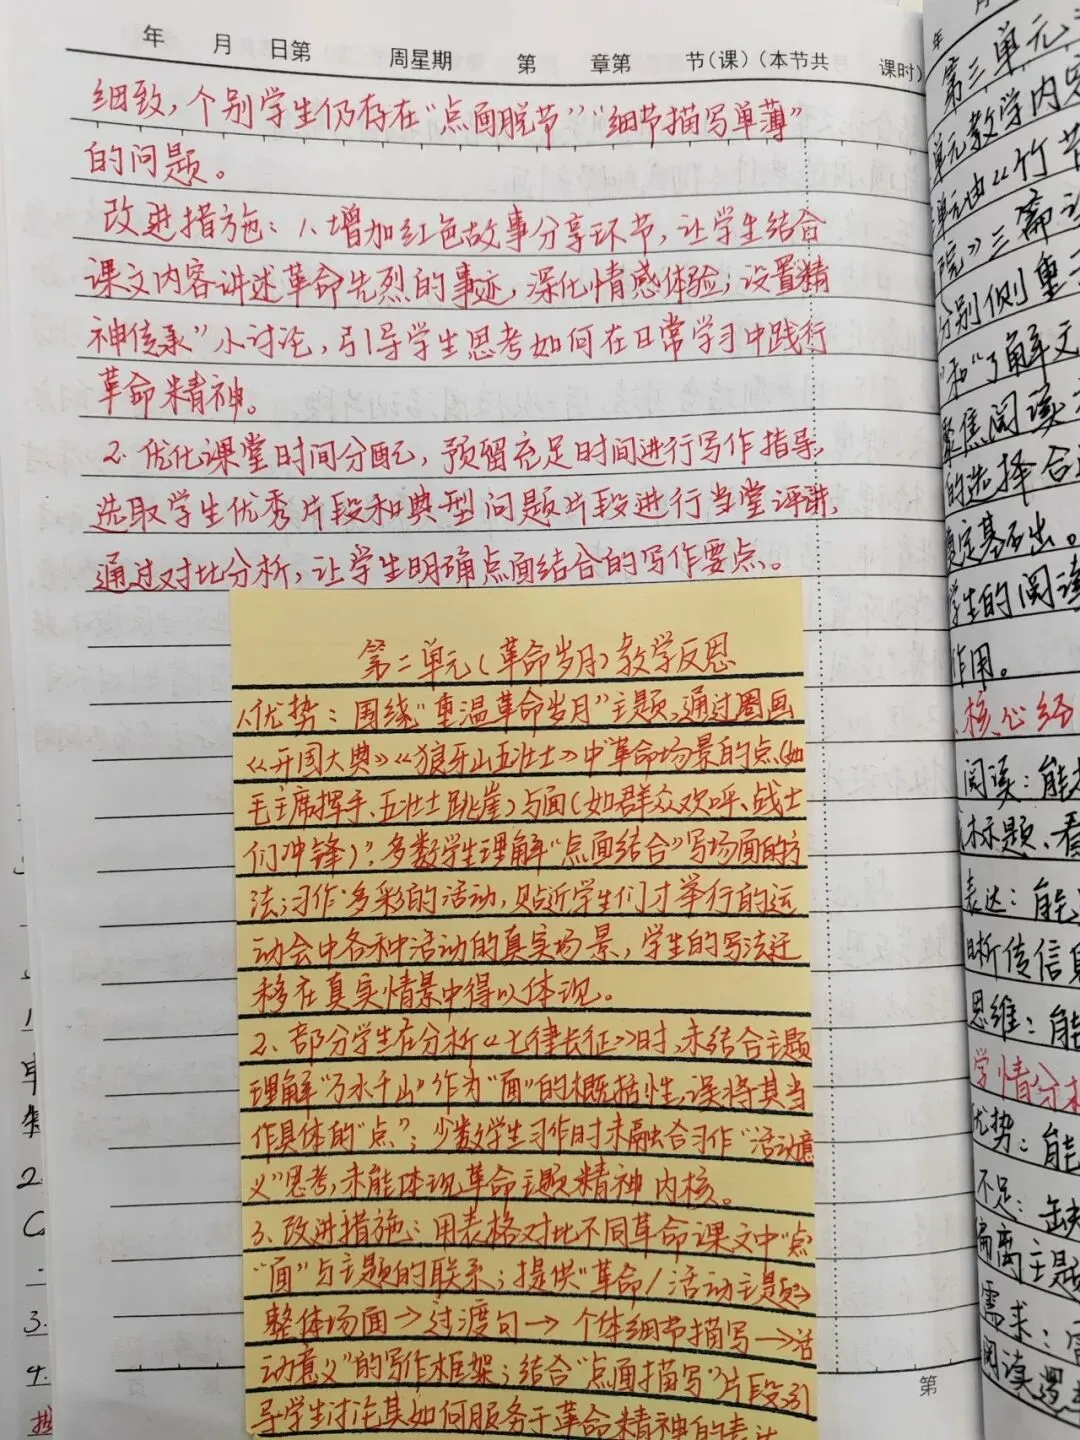 年 月 日第 周星期 第 章第 节(课)(本节共 课时)
细致，个别学生仍存在“点面脱节”“细节描写单薄”
的问题。
改进措施：1、增加红色故事分享环节，让学生结合
课文内容讲述革命先烈的事迹，深化情感体验；设置精
神传承”小讨论，引导学生思考如何在日常学习中践行
革命精神。
2、优化课堂时间分配，预留充足时间进行写作指导，
选取学生优秀片段和典型问题片段进行当堂评讲，
通过对比分析，让学生明确点面结合的写作要点。
第二单元(革命岁月)教学反思
1、优势：围绕“重温革命岁月”主题，通过圈画
《开国大典》《狼牙山五壮士》中革命场景的点(如
毛主席挥手、五壮士跳崖)与面(如群众欢呼、战士
们冲锋)，多数学生理解“点面结合”写场面的方
法；习作“多彩的活动，贴近学生们才举行的运
动会中各种活动的真实场景，学生的写法迁
移在真实情景中得以体现。
2、部分学生在分析《七律长征》时，未结合主题
理解“万水千山”作为“面”的概括性，误将其当
作具体的“点”；少数学生习作时未融合习作“活动意
义”思考，未能体现革命主题精神内核。
3、改进措施：用表格对比不同革命课文中“点”
“面”与主题的联系；提供“革命/活动主题→
整体场面→过渡句→个体细节描写→活
动意义”的写作框架；结合“点面描写”片段，引
导学生讨论其如何服务于革命精神的表达
第
年 月
第三单元
单元教学内容
单元由《竹节
院》三篇
分别侧重
”和“了解文
聚焦阅读
的选择合
奠定基石出。
学生的阅读
作用。
核心经
阅读：能
标题、看
表达：能
晰传信
思维：能
学情分析
优势：能
不足：缺
偏离主题
需求：
阅读
1.
2.
3.
4.